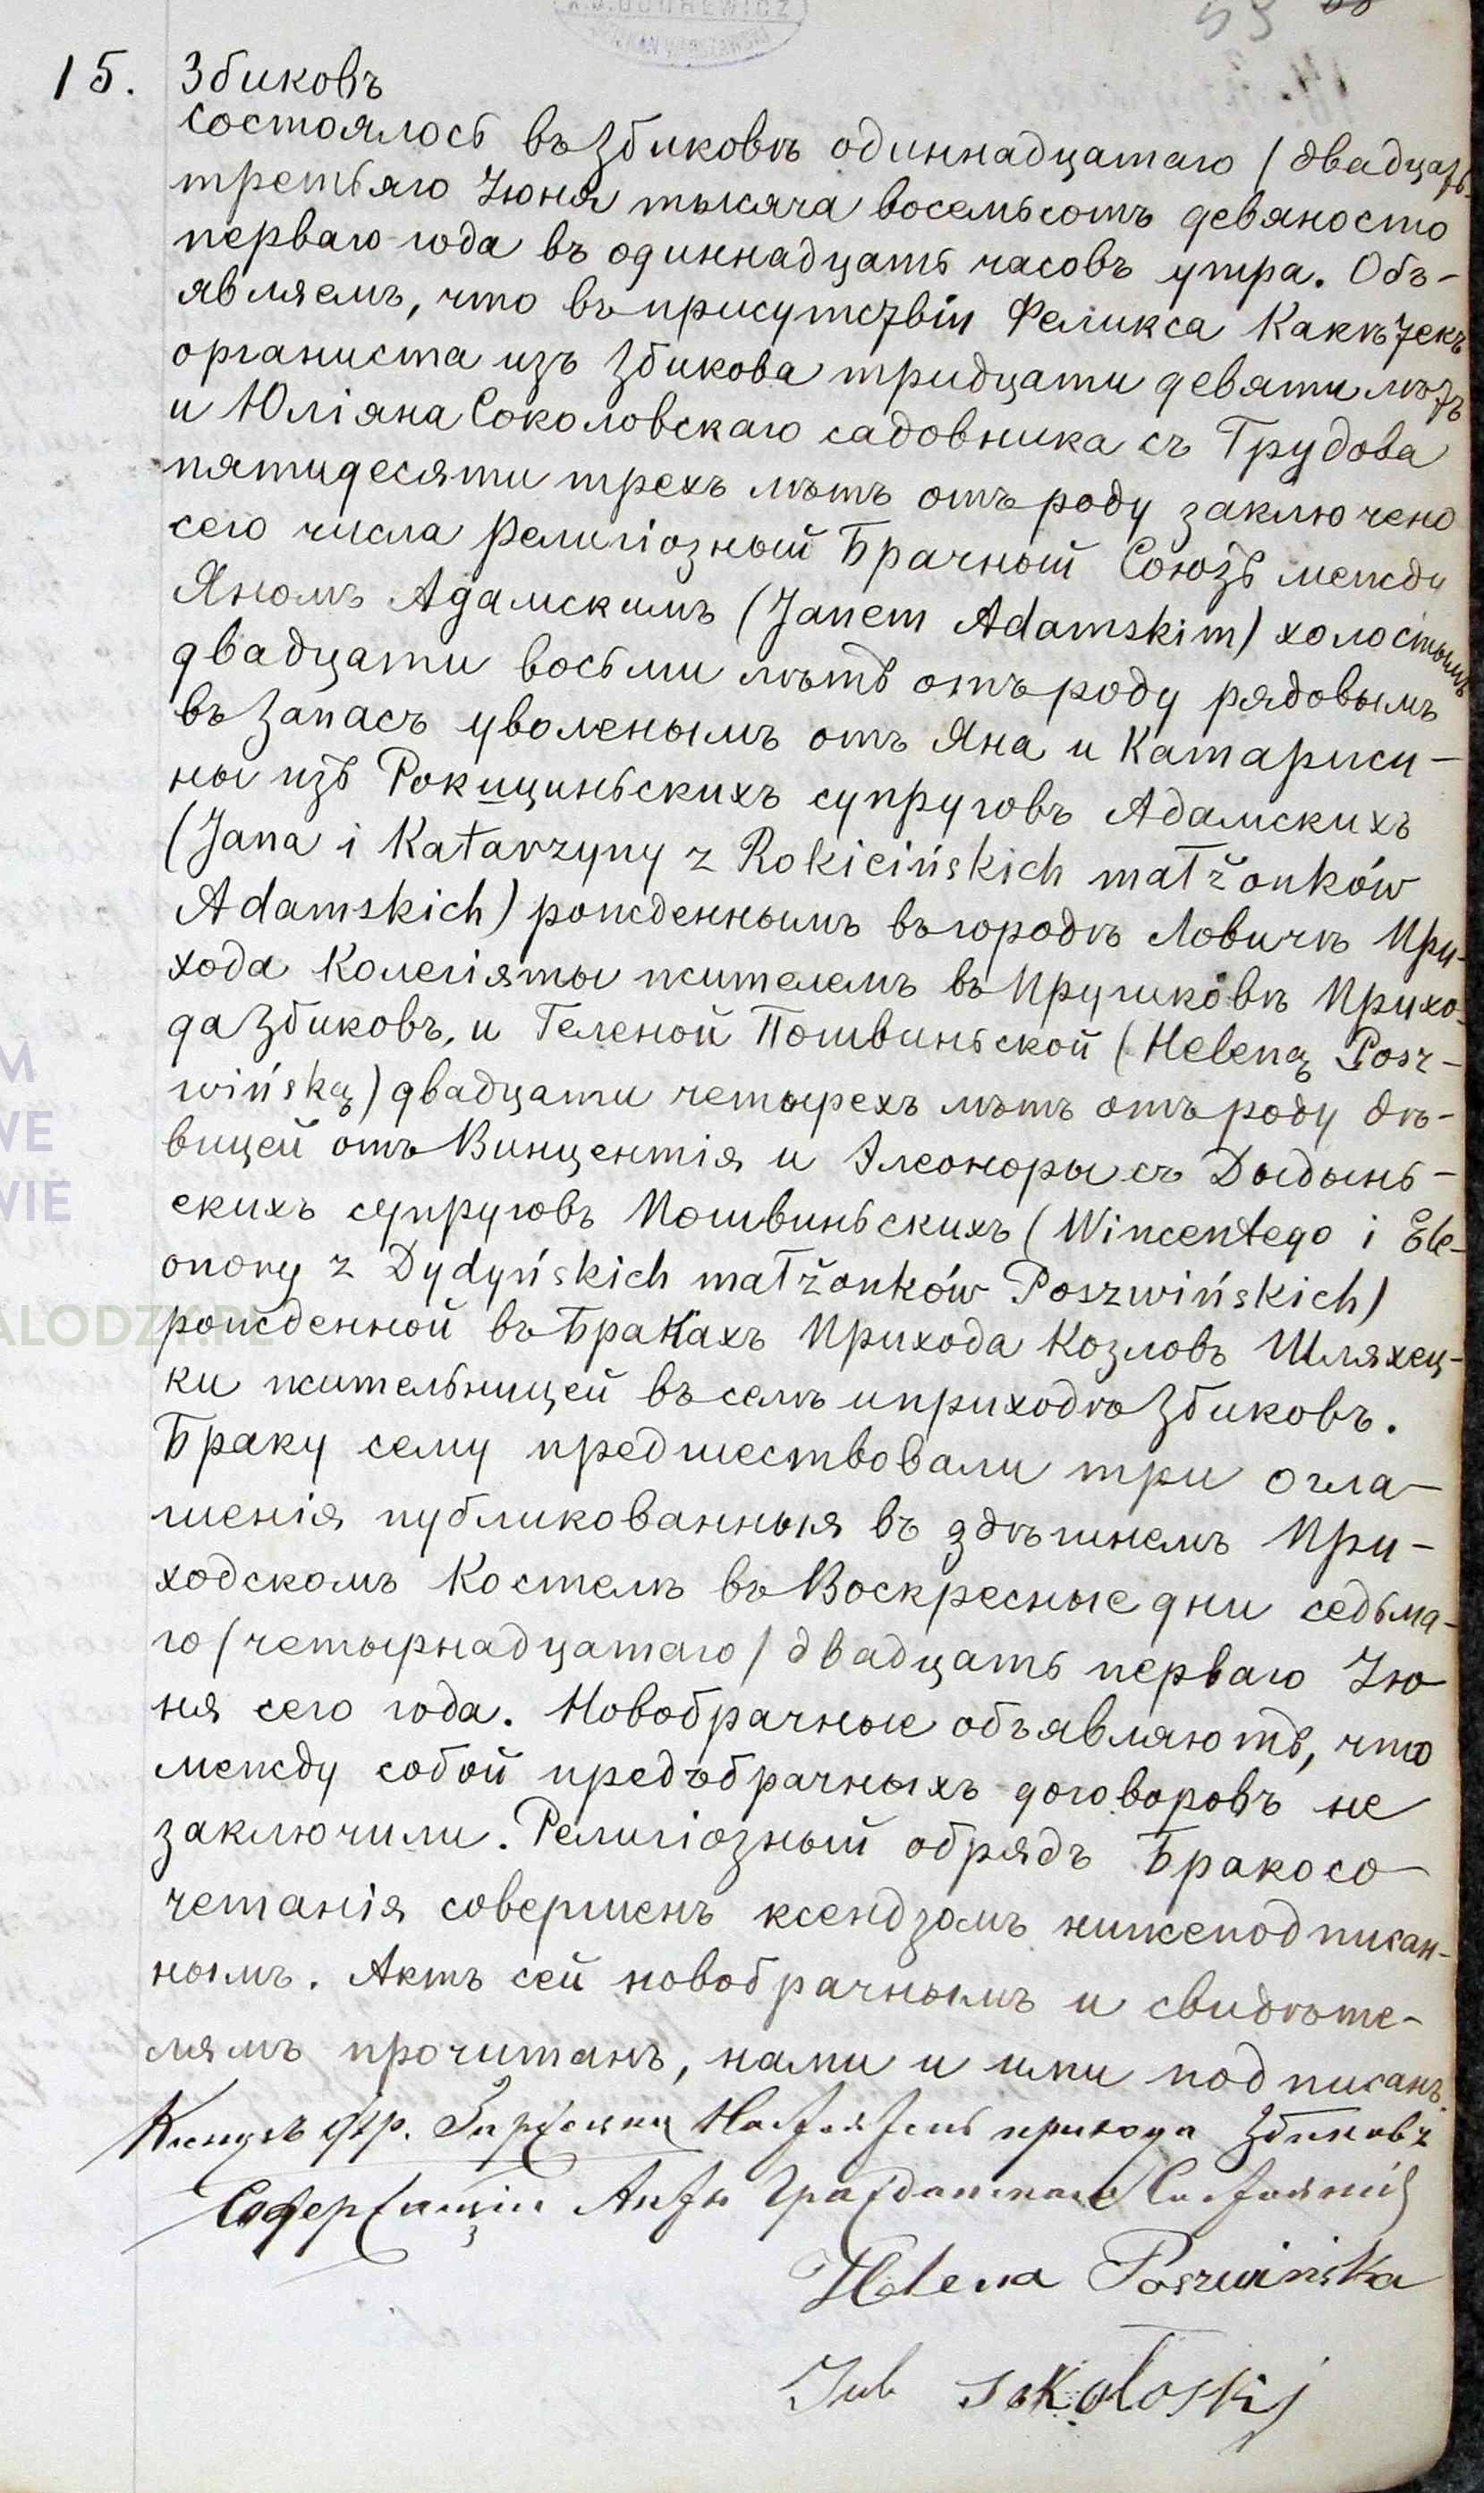 15. Збиковъ
Состоялось въ Збиковѣ одиннадцатаго / двадцать
третьяго Іюня тысяча восемьсотъ девяносто
перваго года въ одиннадцать часовъ утра. Объ-
являемъ, что въ присутствіи Феликса
органиста изъ Збикова тридцати девяти лѣтъ
и Юліяна Соколовскаго садовника съ Трудова
пятидесяти трехъ лѣтъ отъ роду заключено
сего числа Религіозный Брачный Союзъ между
Яномъ Адамскимъ (Janem Adamskim) холостымъ
двадцати восьми лѣтъ отъ роду рядовымъ
въ запасъ уволенымъ отъ Яна и Катариси-
ны изъ Рокициньскихъ супруговъ Адамскихъ
(Jana i Katarzyny z Rokicińskich małżonków
Adamskich) рожденнымъ въ городѣ Ловичѣ При-
хода Колегіяты жителемъ въ Прушковѣ Прихо-
да Збиковъ, и Геленой Пошвиньской (Heleną Posz-
wińską) двадцати четырехъ лѣтъ отъ роду дѣ-
вицей отъ Винцентія и Элеоноры съ Дыдынь-
скихъ супруговъ Пошвиньскихъ (Wincentego i Ele-
onory z Dydyńskich małżonków Poszwińskich)
рожденной въ Бракахъ Прихода Козловъ Шляхец-
ки жительницей въ семъ и приходѣ Збиковъ.
Браку сему предшествовали три огла-
шенія публикованныя въ здѣшнемъ При-
ходскомъ Костелѣ въ Воскресные дни седьма-
го / четырнадцатаго / двадцать перваго Ію-
ня сего года. Новобрачные объявляютъ, что
между собой предъбрачныхъ договоровъ не
заключили. Религіозный обрядъ Бракосо-
четанія совершенъ ксендзомъ нижеподписан-
нымъ. Актъ сей новобрачнымъ и свидѣте-
лямъ прочитанъ, нами и ими подписанъ.
Ксендзъ Фр. Настоятель прихода Збиковъ
Содержащій Акты Гражданскаго Состоянія
Helena Poszwińska
Jul Sokołoski